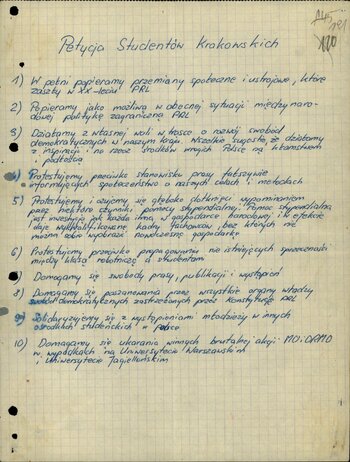 Petycja Studentów Krakowskich
1) W pełni popieramy przemiany społeczne i ustrojowe, które
zaszły w XX-leciu PRL
2) Popieramy jako możliwą w obecnej sytuacji międzynaro-
dowej politykę zagraniczną PRL
3) Działamy z własnej woli w trosce o rozwój swobód
demokratycznych w naszym kraju. Wszelkie sugestie, że działamy
z inspiracji i na rzecz środków wrogich Polsce są kłamstwem
i podłością
4) Protestujemy przeciwko stanowisku prasy fałszywie
informującej społeczeństwo o naszych celach i metodach
5) Protestujemy i czujemy się głęboko dotknięci wypominaniem
przez niektóre czynniki pomocy stypendialnej. Pomoc stypendialna
jest inwestycją jak każda inna w gospodarce narodowej i w efekcie
daje wykwalifikowane kadry fachowców, bez których nie
można sobie wyobrazić nowoczesnej gospodarki
6) Protestujemy przeciwko nie istniejących sprzeczności
między klasą robotniczą a studentami
7) Domagamy się swobody prasy, publikacji i wystąpień
8) Domagamy się poszanowania przez wszystkie organy władzy
swobód demokratycznych zastrzeżonych przez Konstytucję PRL
9) Solidaryzujemy się z wystąpieniami młodzieży w innych
ośrodkach studenckich w Polsce
10) Domagamy się ukarania winnych brutalnej akcji MO i ORMO
w wypadkach na Uniwersytecie Warszawskim
i Uniwersytecie Jagiellońskim